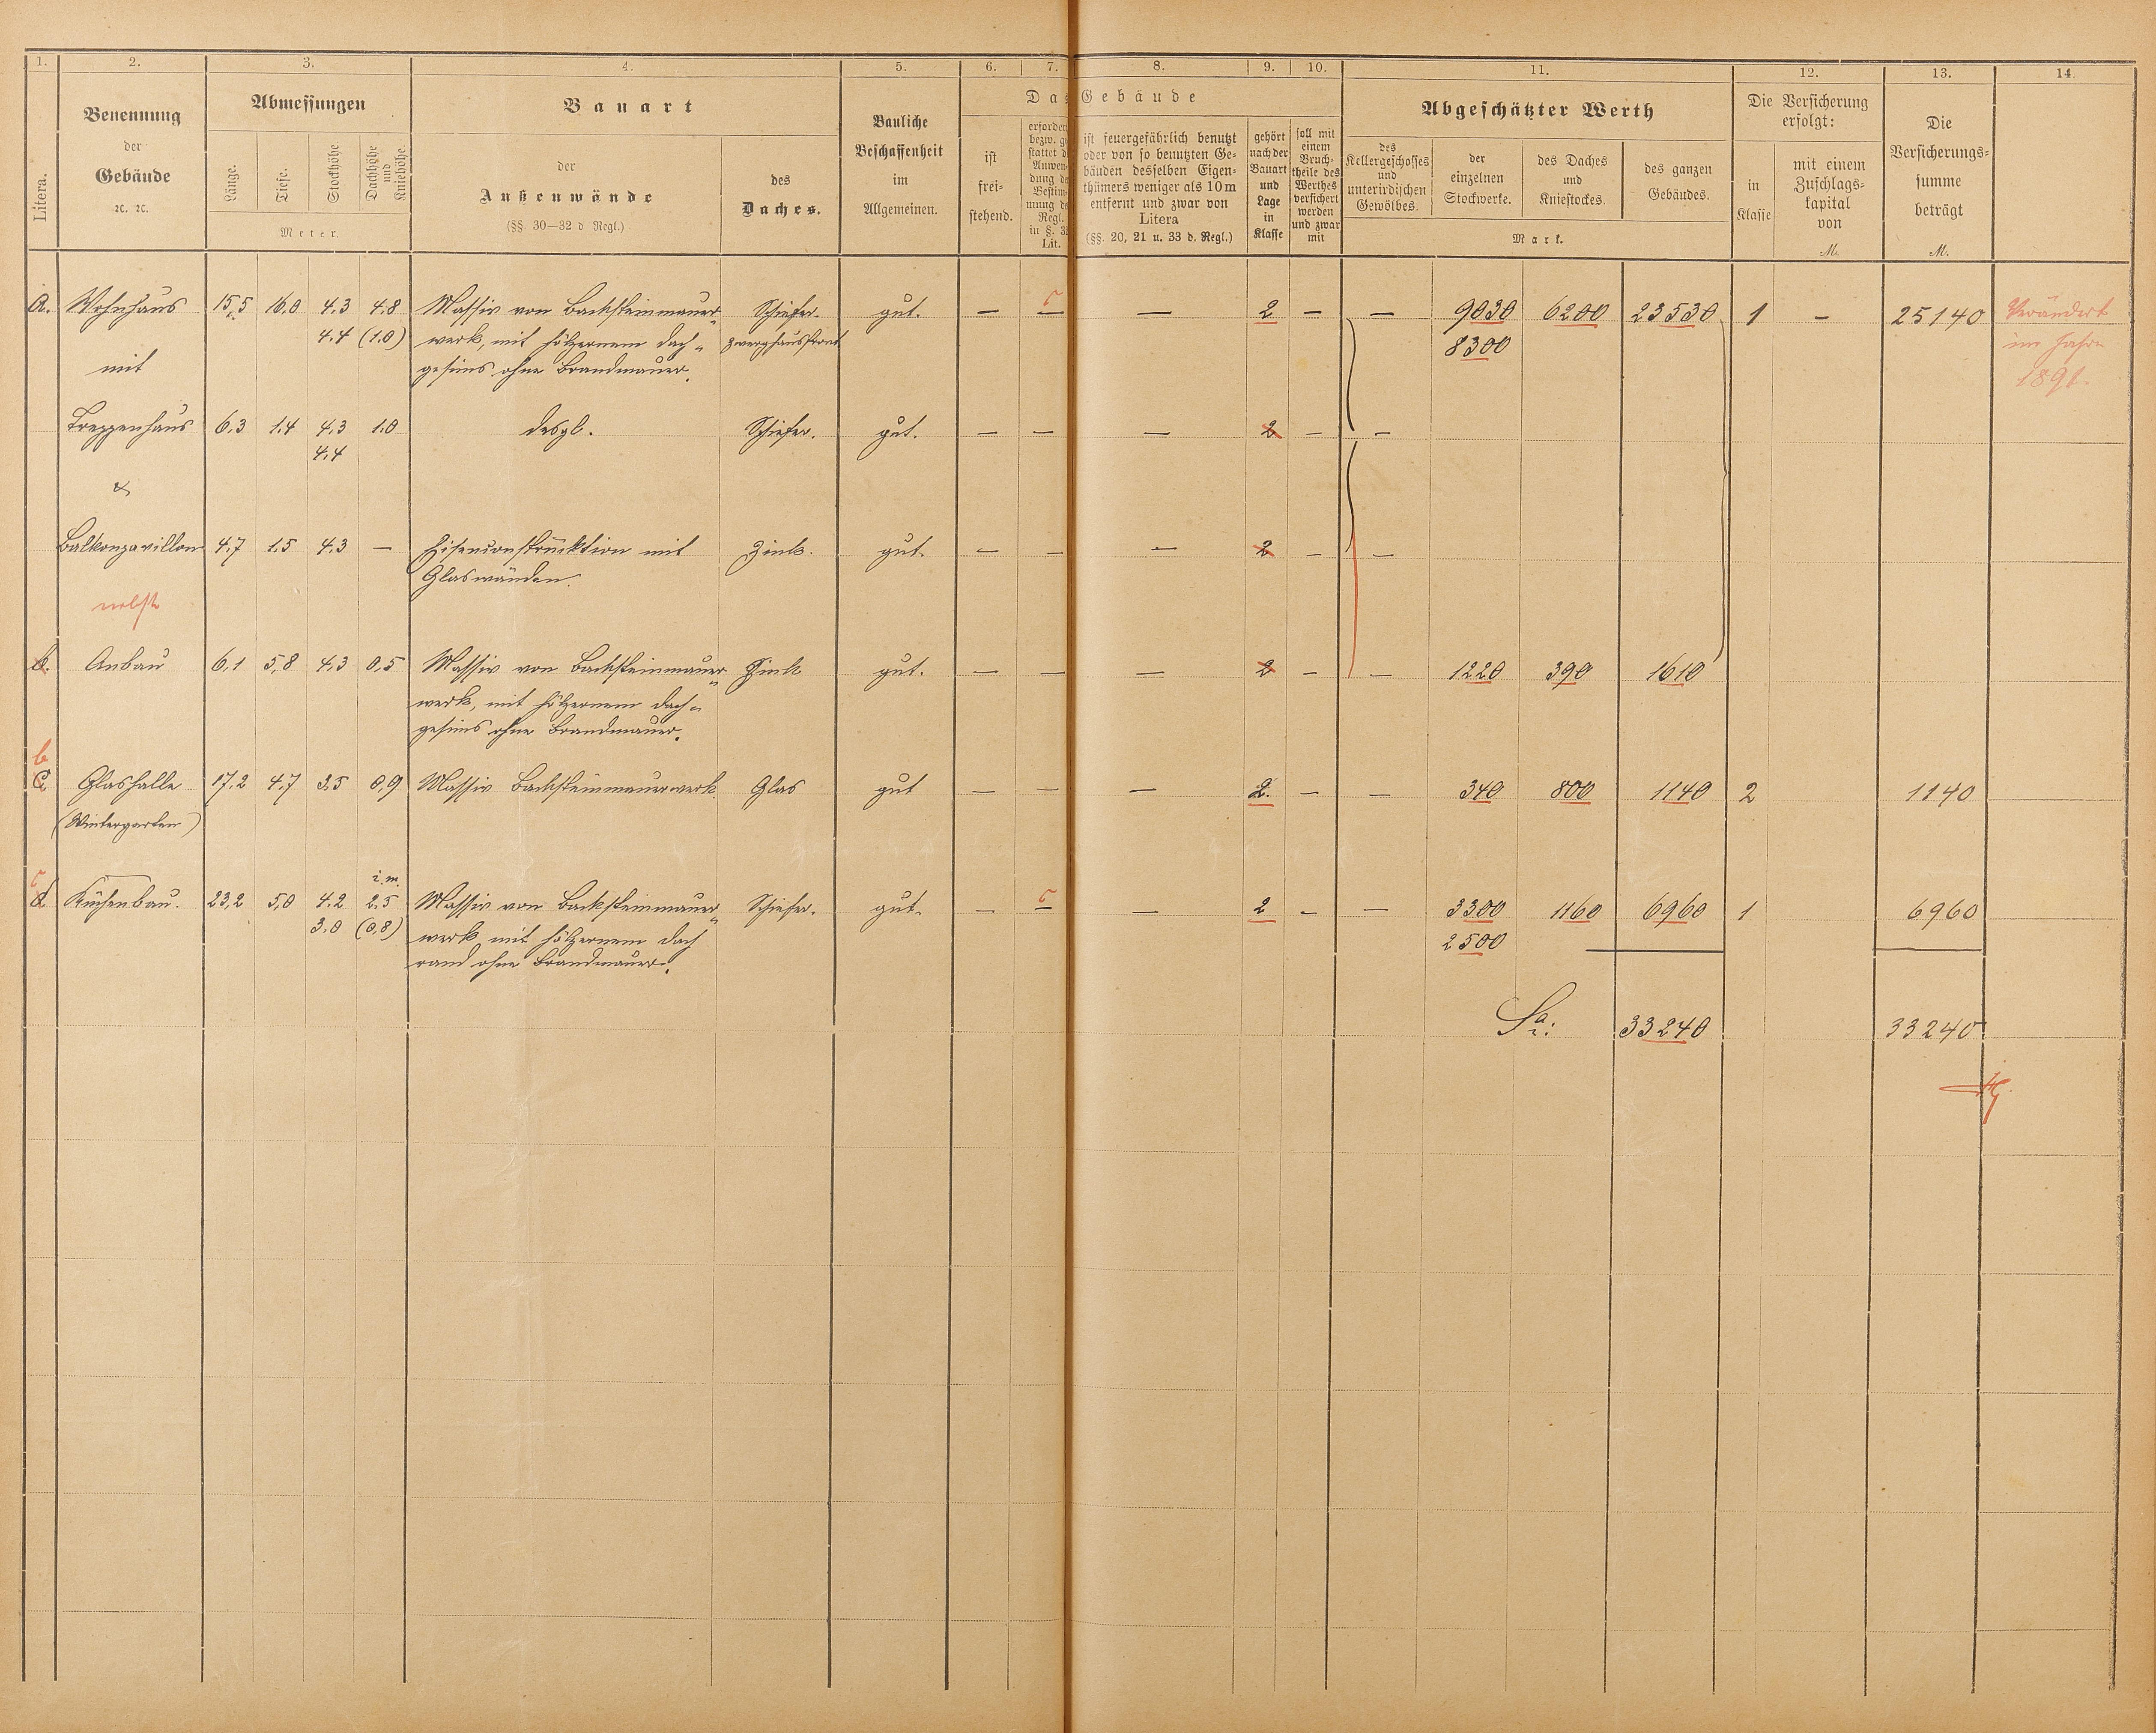 1. 2. 3. 4. 5. 6. 7. 8. 9. 10. 11. 12. 13. 14.
Litera.
Benennung
der
Gebäude
ꝛc. ꝛc.
Abmessungen
Länge.
Tiefe.
Stockhöhe
Dachhöhe
und
Kniehöhe.
Meter.
Bauart
der
Außenwände
(§§. 30—32 d Regl.)
des
Daches.
Bauliche
Beschaffenheit
im
Allgemeinen.
Das Gebäude
ist
frei-
stehend.
erforder
bezw. ge
stattet d
Anwen
dung de
Bestim
mung de
Regl.
in §. 3
Lit.
ist feuergefährlich benutzt
oder von so benutzten Ge-
bäuden desselben Eigen-
thümers weniger als 10 m
entfernt und zwar von
Litera
(§§. 20, 21 u. 33 d. Regl.)
gehört
nach der
Bauart
und
Lage
in
Klasse
soll mit
einem
Bruch-
theile des
Werthes
versichert
werden
und zwar
mit
Abgeschätzter Werth
des
Kellergeschosses
und
unterirdischen
Gewölbes.
der
einzelnen
Stockwerke.
des Daches
und
Kniestockes.
des ganzen
Gebäudes.
Mark.
Die Versicherung
erfolgt:
in
Klasse
mit einem
Zuschlags-
kapital
von
M.
Die
Versicherungs-
summe
beträgt
M.
a. Wohnhaus 15,5 16,0 4,3 4,8 Massiv von Backsteinmauer- Schiefer- gut. — — c — 2 — — 9030 6200 23530 1 — 25140 Verändert
4,4 (1,0) werk, mit hölzernem Dach- Zwerghausfront 8300 im Jahre
mit gesims ohne Brandmauer. 1891.
Treppenhaus 6,3 1,4 4,3 1,0 desgl. Schiefer. gut. — — — 2 — —
4,4
&
Balkonpavillon 4,7 1,5 4,3 — Eisenconstruktion mit Zink. gut. — — — 2 — —
Glaswänden.
nebst
b. Anbau 6,1 5,8 4,3 0,5 Massiv von Backsteinmauer- Zink gut. — — — 2 — — 1220 390 1610
werk, mit hölzernem Dach-
gesims ohne Brandmauer.
b
c. Glashalle 17,2 4,7 3,5 0,9 Massiv Backsteinmauerwerk Glas gut — — — 2. — — 340 800 1140 2 1140
(Wintergarten)
c i. m.
d Küchenbau. 23,2 5,0 4,2 2,5 Massiv von Backsteinmauer- Schiefer. gut. — — c — 2 — — 3300 1160 6960 1 6960
3,0 (0,8) werk mit hölzernem Dach 2500
rand ohne Brandmauer.
Sa: 33240 33240